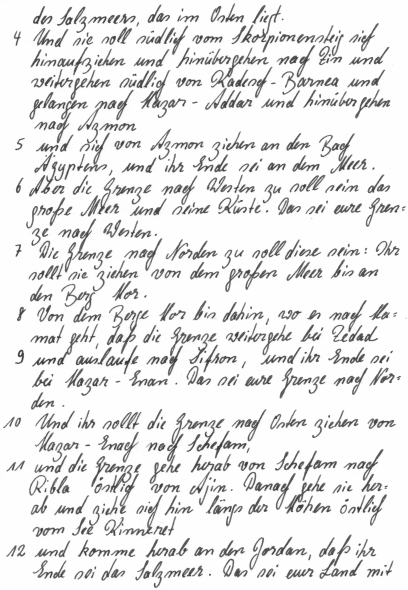 des Salzmeers, das im Osten liegt.
4 Und sie soll südlich vom Skorpionensteig sich
hinaufziehen und hinübergehen nach Zin und
weitergehen südlich von Kadesch-Barnea und
gelangen nach Hazar-Addar und hinübergehen
nach Azmon
5 und sich von Azmon ziehen an den Bach
Ägyptens, und ihr Ende sei an dem Meer.
6 Aber die Grenze nach Westen zu soll sein das
große Meer und seine Küste. Das sei eure Gren-
ze nach Westen.
7 Die Grenze nach Norden zu soll diese sein: Ihr
sollt sie ziehen von dem großen Meer bis an
den Berg Hor.
8 Von dem Berge Hor bis dahin, wo es nach Ha-
mat geht, daß die Grenze weitergehe bei Zedad
9 und auslaufe nach Sifron, und ihr Ende sei
bei Hazar-Enan. Das sei eure Grenze nach Nor-
den.
10 Und ihr sollt die Grenze nach Osten ziehen von
Hazar-Enach nach Schefam,
11 und die Grenze gehe herab von Schefam nach
Ribla östlich von Ajin. Danach gehe sie her-
ab und ziehe sich hin längs der Höhen östlich
vom See Kinneret
12 und komme herab an den Jordan, daß ihr
Ende sei das Salzmeer. Das sei euer Land mit